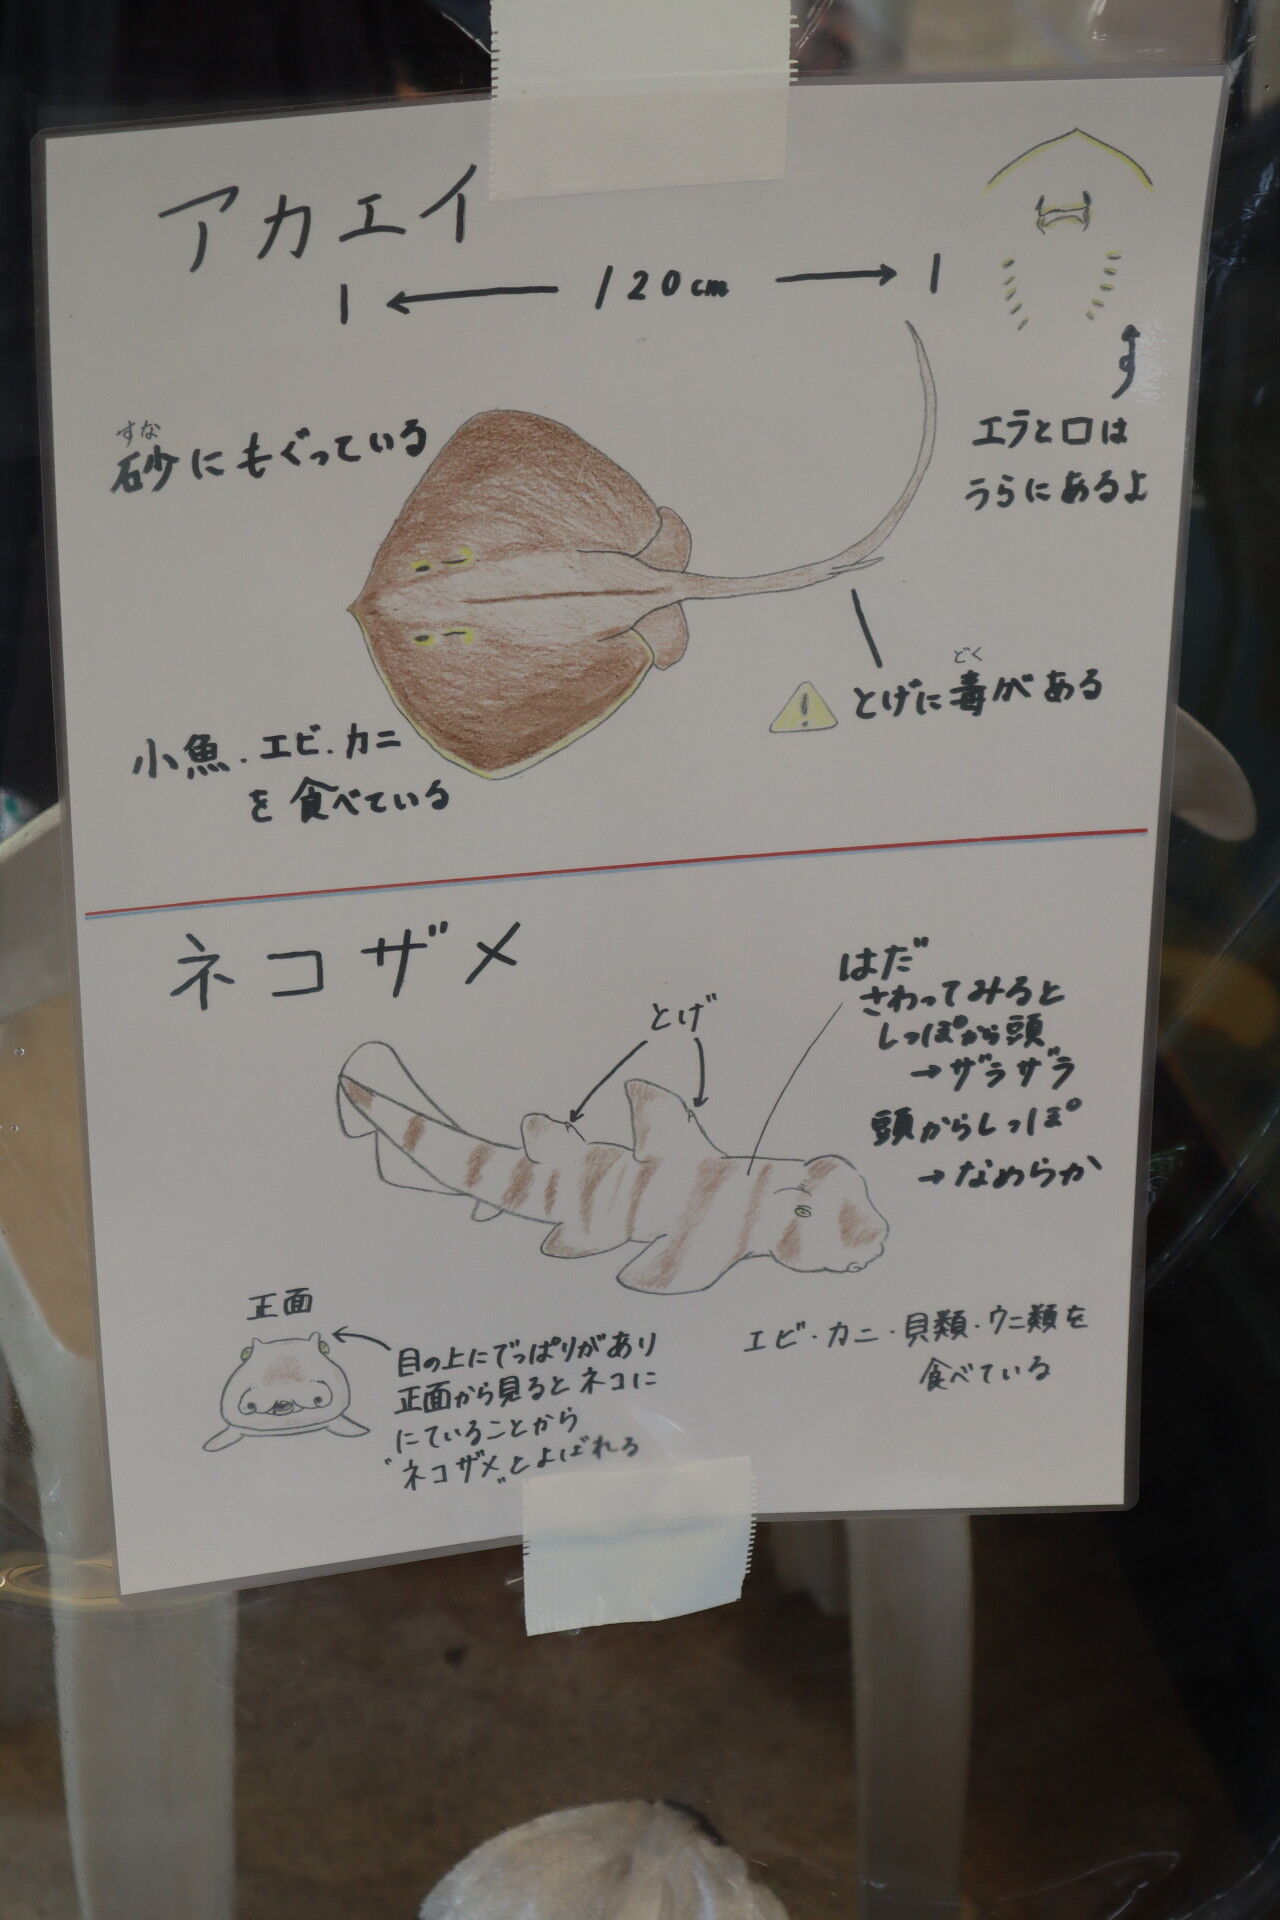 アカエイ
120cm
すな
砂にもぐっている
エラと口は
うらにあるよ
どく
とげに毒がある
小魚・エビ・カニ
を食べている
ネコザメ
とげ
はだ
さわってみると
しっぽから頭
→ザラザラ
頭からしっぽ
→なめらか
正面
目の上にでっぱりがあり
正面から見るとネコに
にていることから
"ネコザメ"とよばれる
エビ・カニ・貝類・ウニ類を
食べている